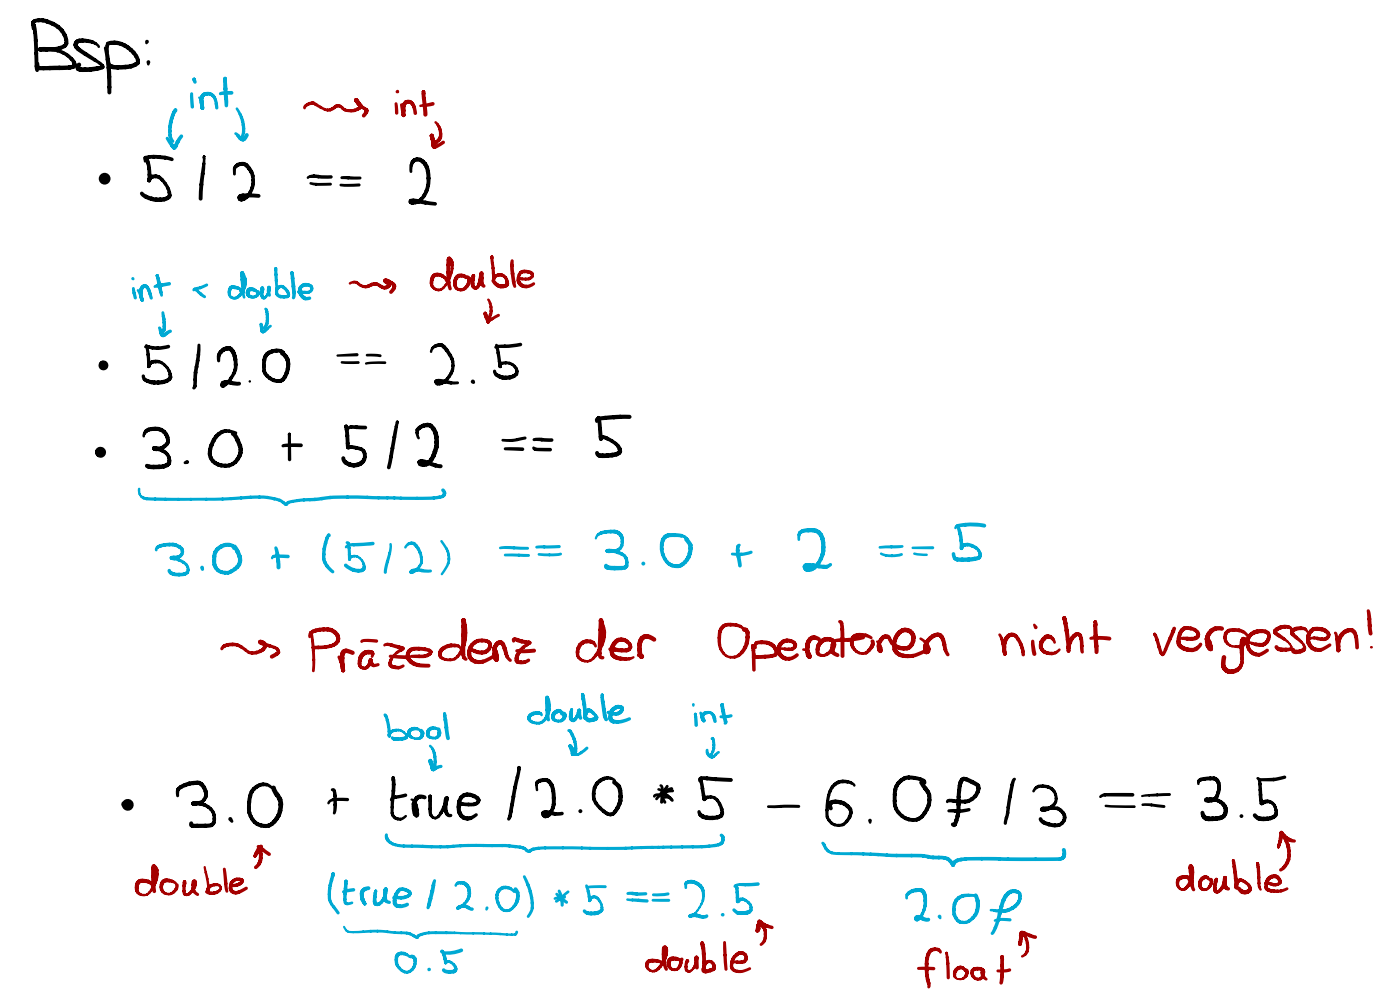 Bsp:
int ⇝ int
• 5 / 2 == 2
int < double ⇝ double
• 5 / 2.0 == 2.5
• 3.0 + 5 / 2 == 5
3.0 + (5 / 2) == 3.0 + 2 == 5
⇝ Präzedenz der Operatoren nicht vergessen!
bool double int
• 3.0 + true / 2.0 * 5 - 6.0f / 3 == 3.5
double (true / 2.0) * 5 == 2.5 2.0f double
0.5 double float